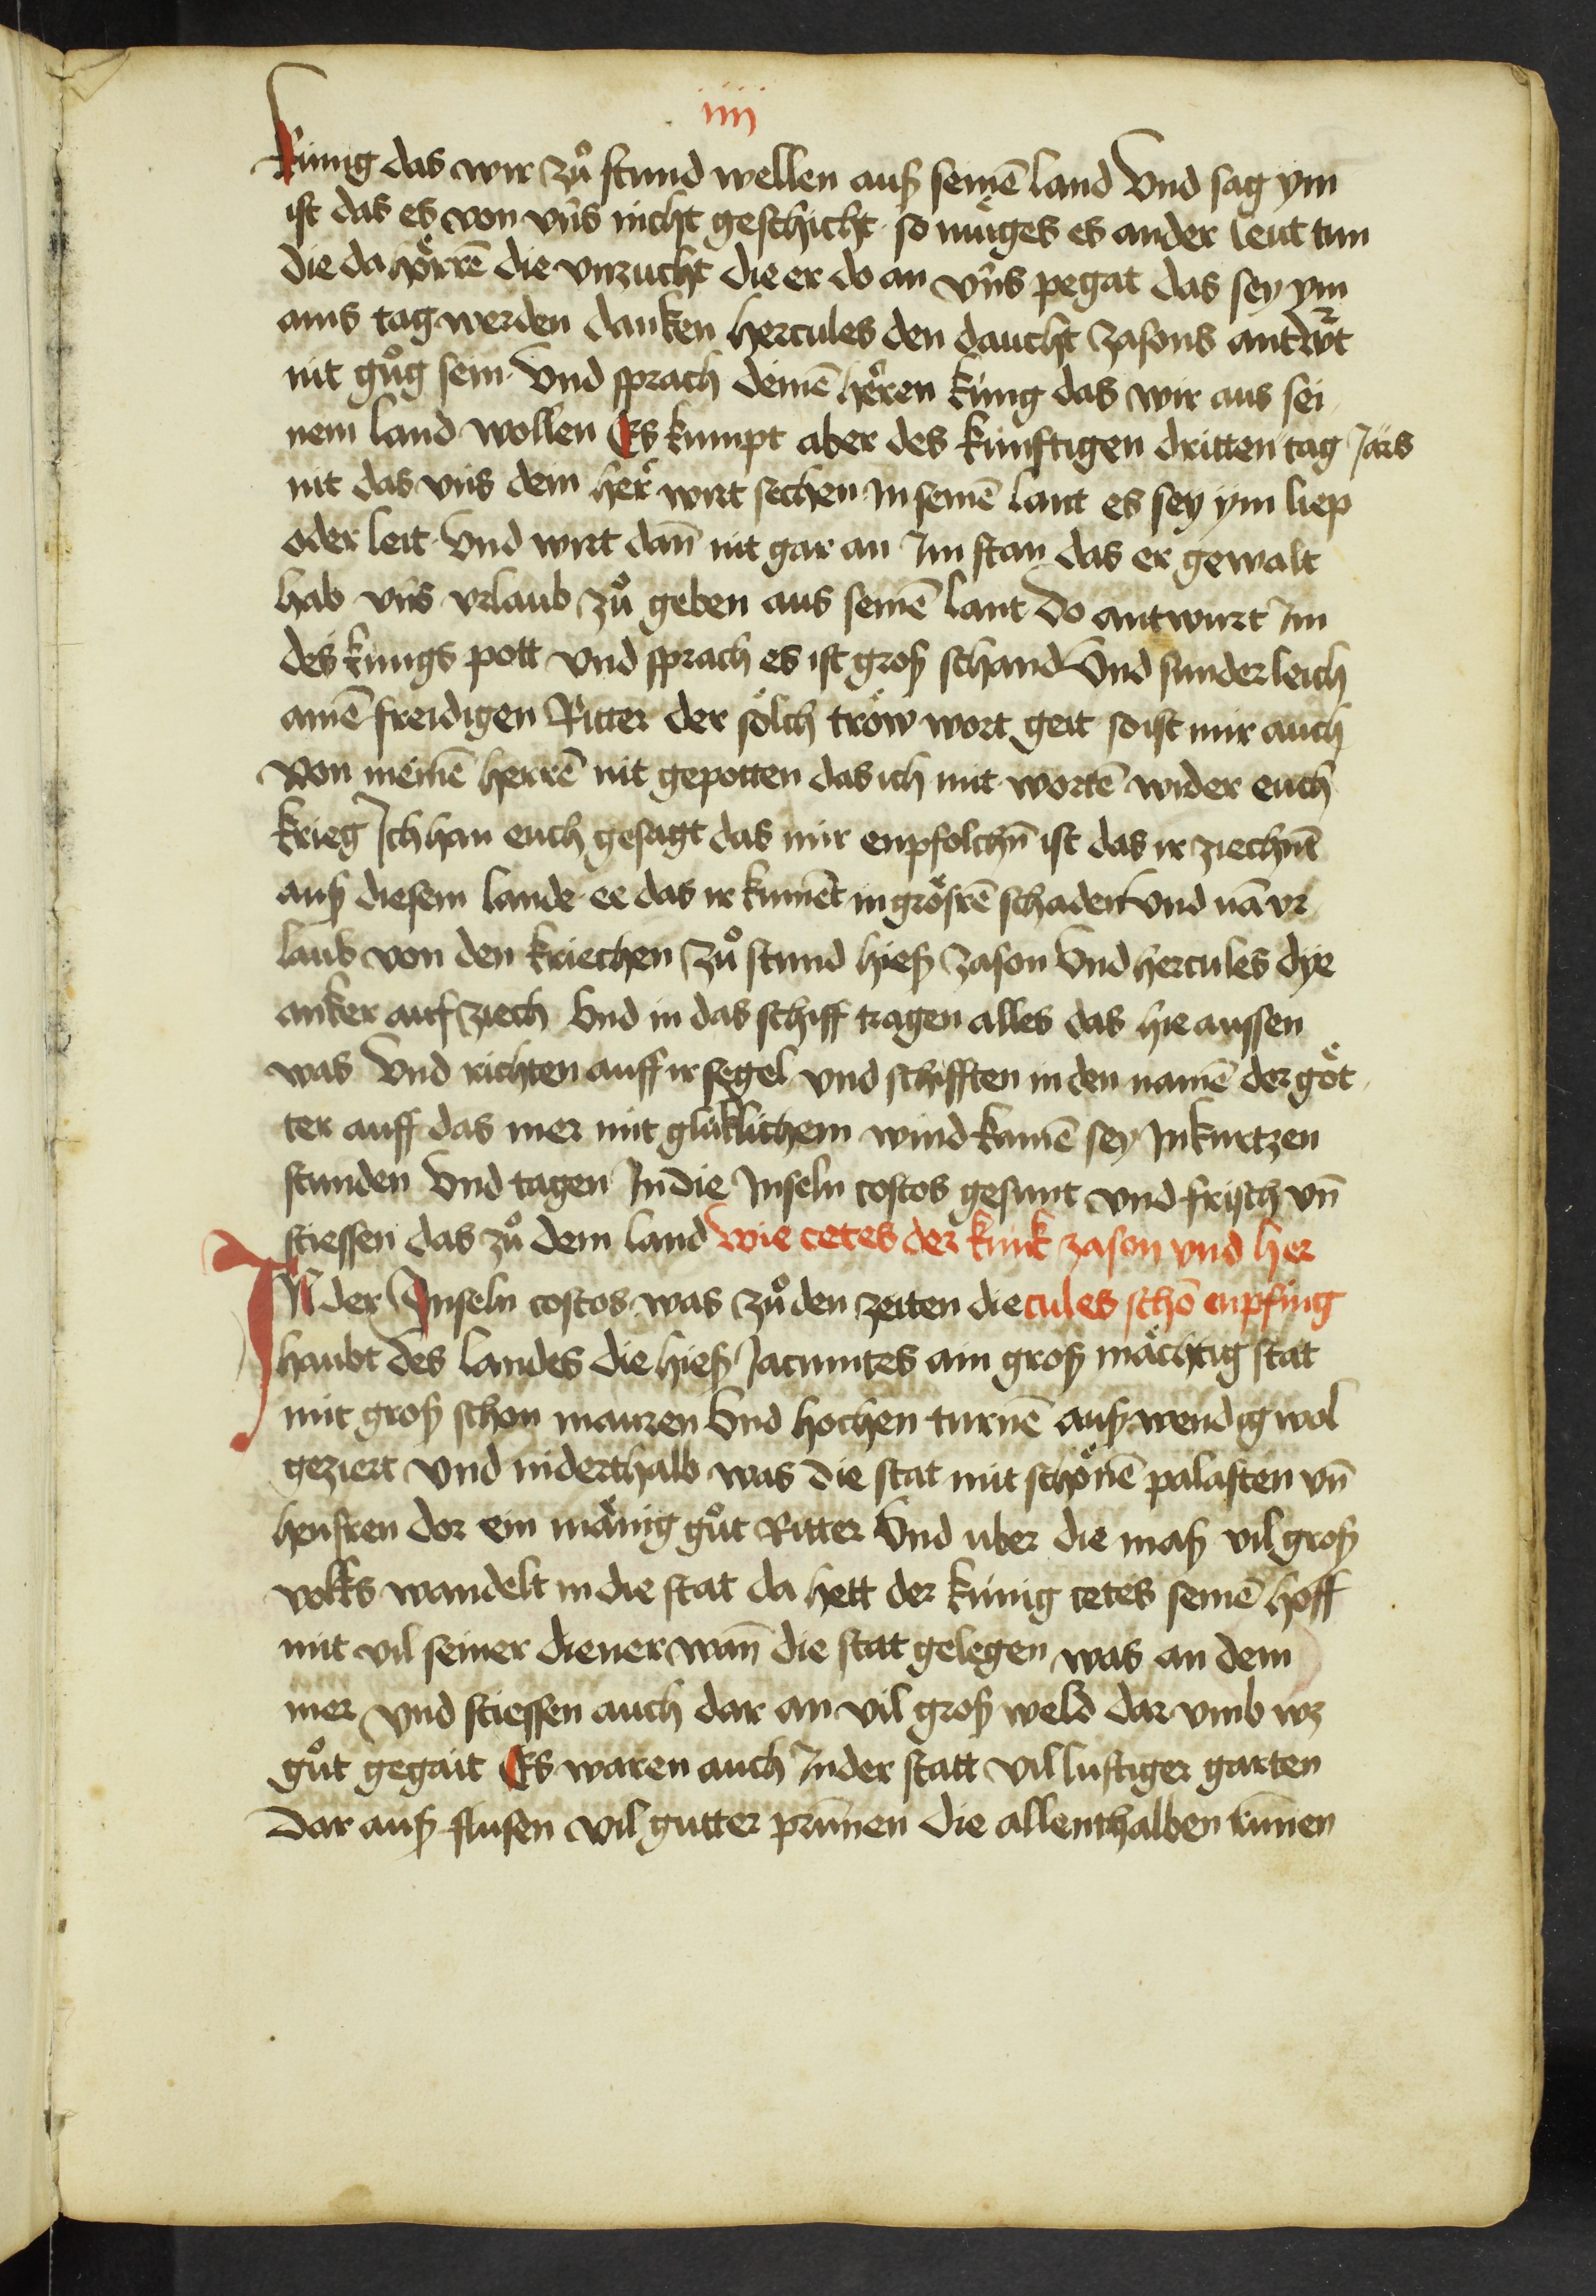 iiij
Künig das wir zuͦ stund wellen auß seinē land Vnd sag ym
ist das es von vns nicht geschicht so müges es ander leut tun
die da hörrē die vnzucht die er do an vns pegat das sey ym
ains tag werden danken hercules den daucht zasons antwrt
nit guͦg sein Vnd sprach deinē herren küng das wir aus sei
nem land wollen Es kumpt aber des kunftigen dritten tag Jars
nit das vns dein her wirt sechen in seinē lant es sey ym liep
oder leit Vnd wirt dañ nit gar an Im stan das er gewalt
hab vns vrlaub zuͦ geben aus seinē lant do antwurt Im
des kungs pott vnd sprach es ist groß schand Vnd sunderleich
ainē freidigen Ritter der sölch tröw wort geit so ist mir auch
von meinē herrē nit gepotten das ich mit wortē wider euch
krieg Ich han euch gesagt das mir enpfolchñ ist das ir ziechent
auß diesem lande ee das ir kument in grösrē schaden vnd nā vr
laub von den kriechen zuͦ stund hieß zason Vnd hercules dye
anker auf ziech Vnd in das schiff tragen alles das hie aussen
was Vnd richten auff ir segel vnd schifften in den namē der göt
ter auff das mer mit glüklichem wind kamē sey In kurtzen
stunden Vnd tagen In die Inseln costos gesunt vnd frisch vñ
stiessen das zuͦ dem land wie cetes der kunk zason vnd her
IN der Inseln costos was zuͦ den zeiten die cules schō enpfing
haubt des landes die hieß Jacuntes ain groß mächtig stat
mit groß schon mauren Vnd hochen turnē außwendig wol
geziert Vnd niderthalb was die stat mit schönē palasten vñ
heusren dor ein mänig guͦt Ritter Vnd uber die maß vil groß
volks wandelt in die stat da hett der künig cetes seinē hoff
mit vil seiner diener wañ die stat gelegen was an dem
mer vnd stiessen auch dar an vil groß weld dar vmb wz
guͦt gegait Es waren auch In der statt vil lustiger garten
Dar auß flusen vil gutter prunnen die allenthalben runnen